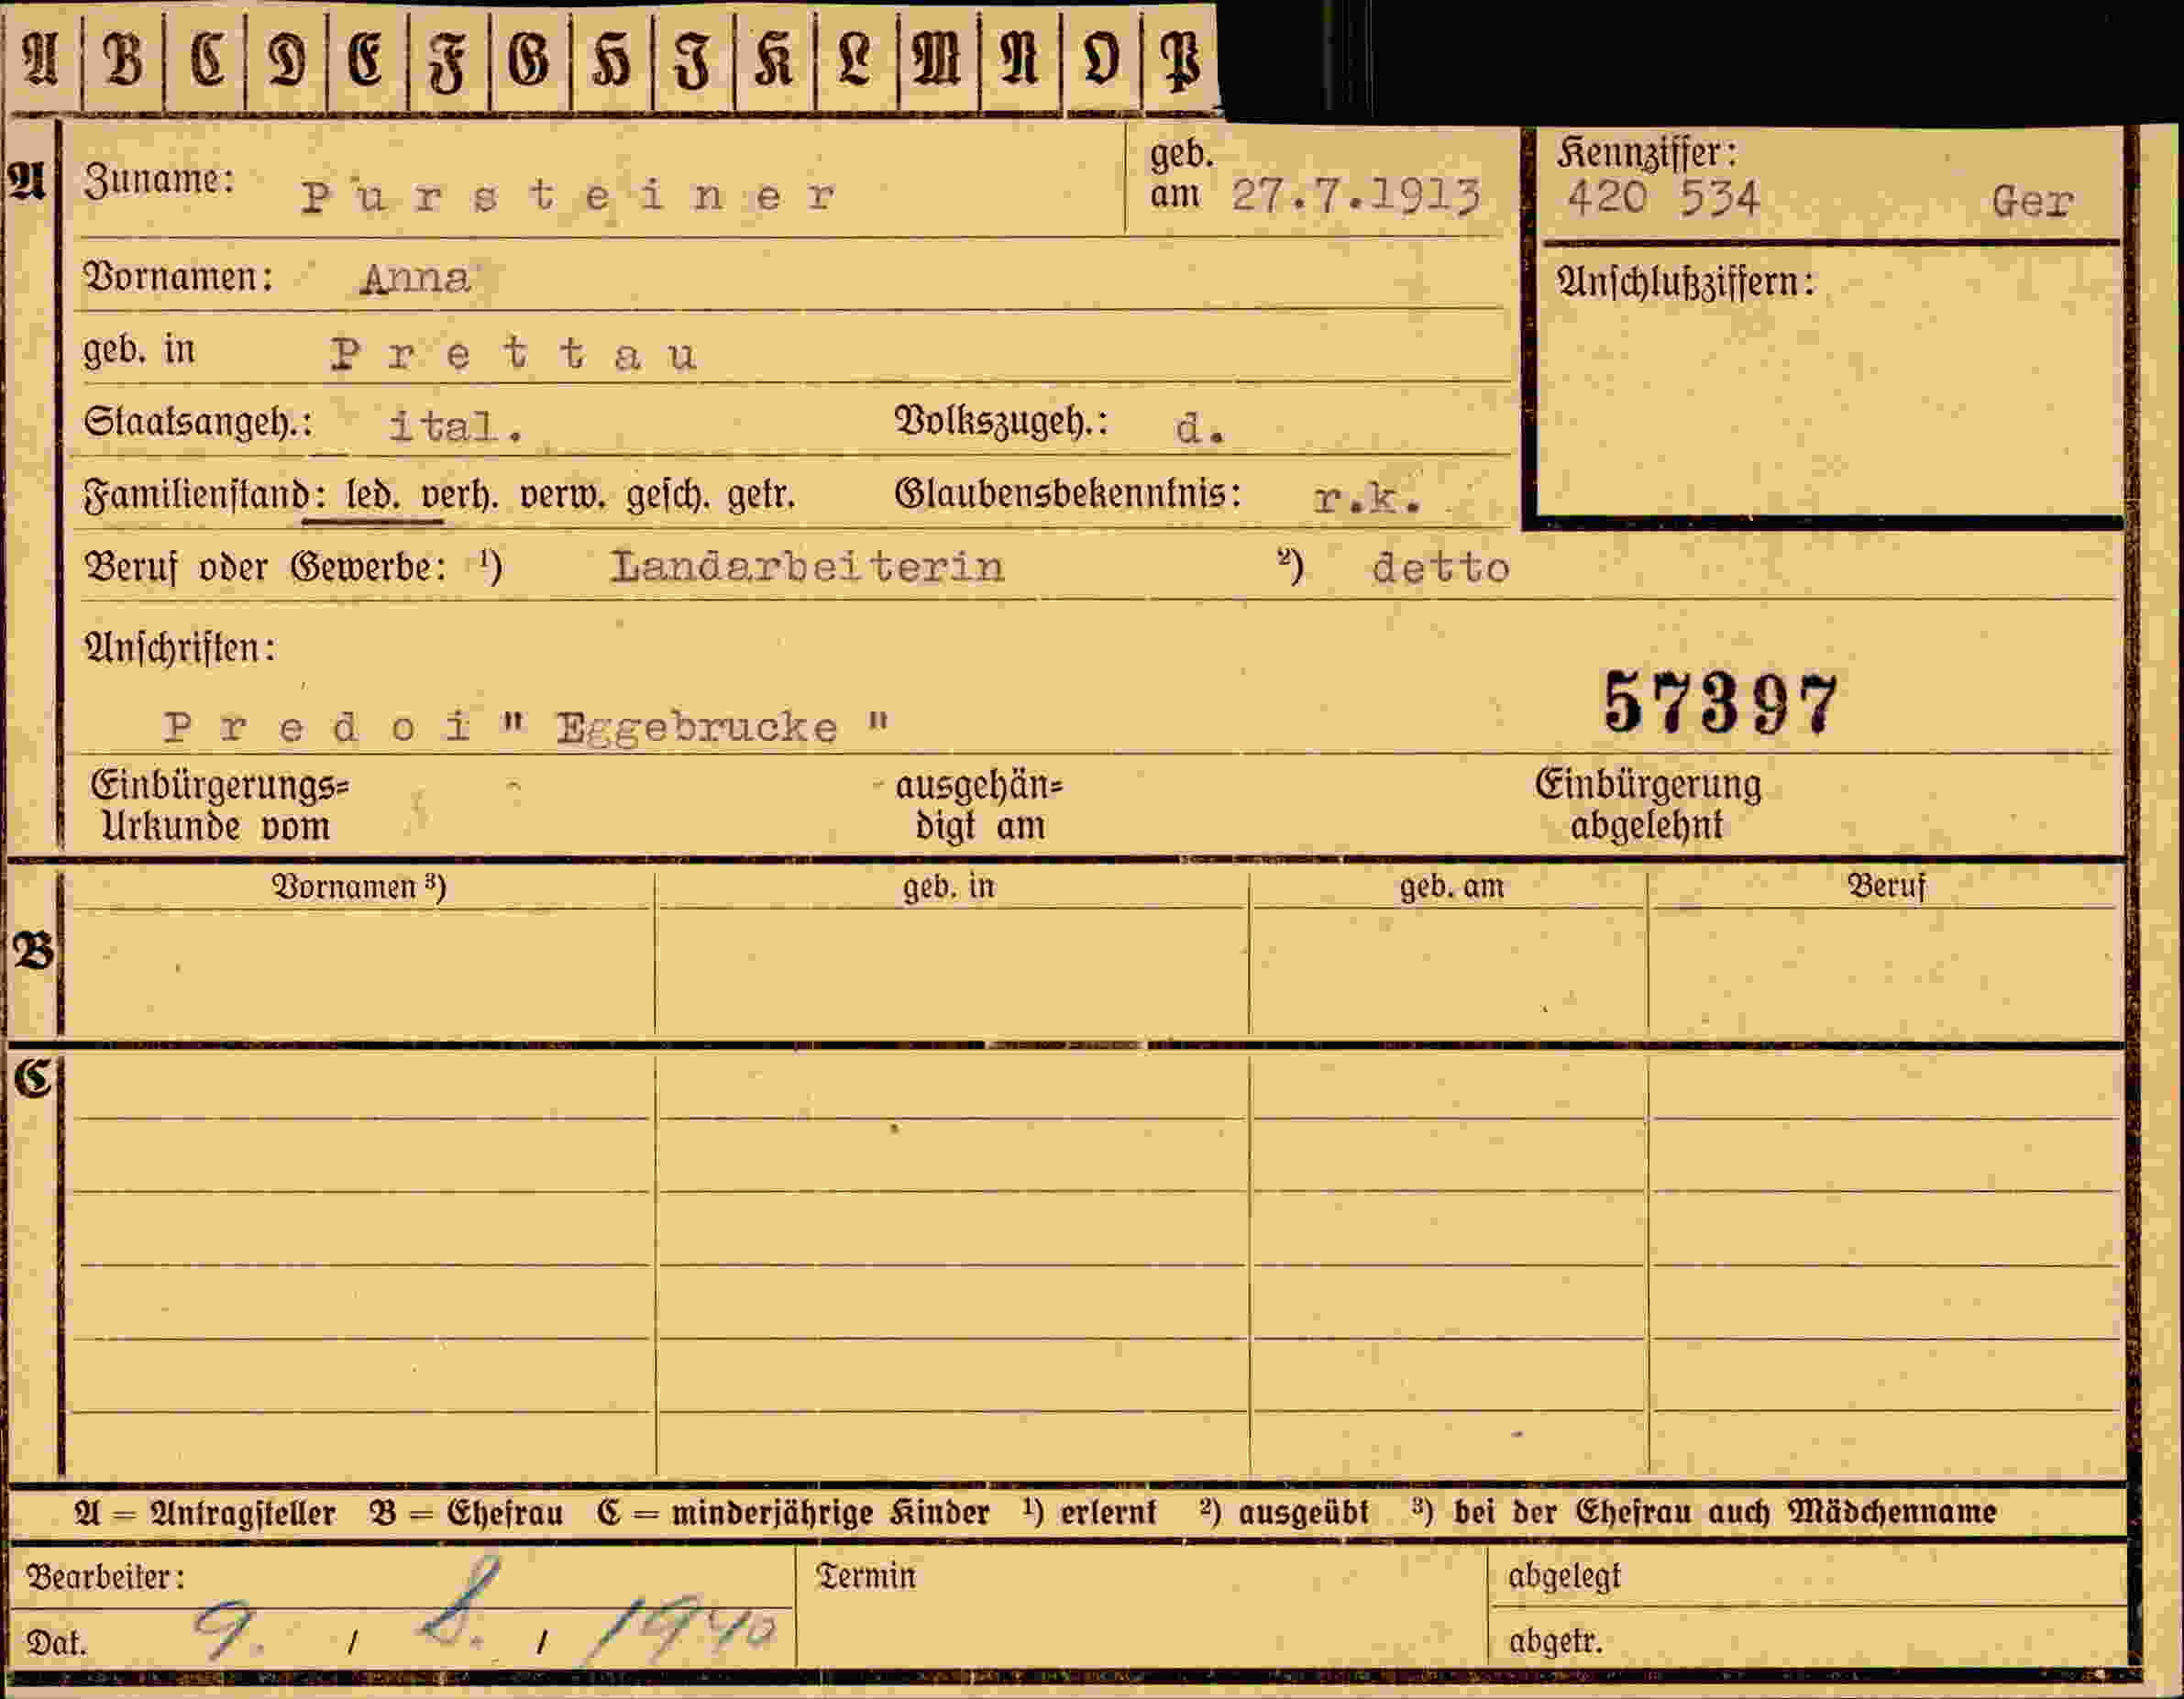 A B C D E F G H I K L M N O P
A Zuname: Pursteiner geb. am 27.7.1913 Kennziffer: 420 534 Ger
Vornamen: Anna Anschlußziffern:
geb. in Prettau
Staatsangeh.: ital. Volkszugeh.: d.
Familienstand: led. verh. verw. gesch. getr. Glaubensbekenntnis: r.k.
Beruf oder Gewerbe: ¹) Landarbeiterin ²) detto
Anschriften:
Predoi " Eggebrucke " 57397
Einbürgerungs= ausgehän= Einbürgerung
Urkunde vom digt am abgelehnt
Vornamen ³) geb. in geb. am Beruf
B
C
A = Antragsteller B = Ehefrau C = minderjährige Kinder ¹) erlernt ²) ausgeübt ³) bei der Ehefrau auch Mädchenname
Bearbeiter: Termin abgelegt
Dat. 9. / 8. / 1940 abgetr.